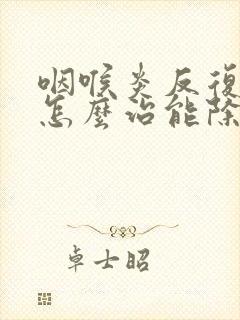 咽喉炎反復
怎麼治能除
卓士昭